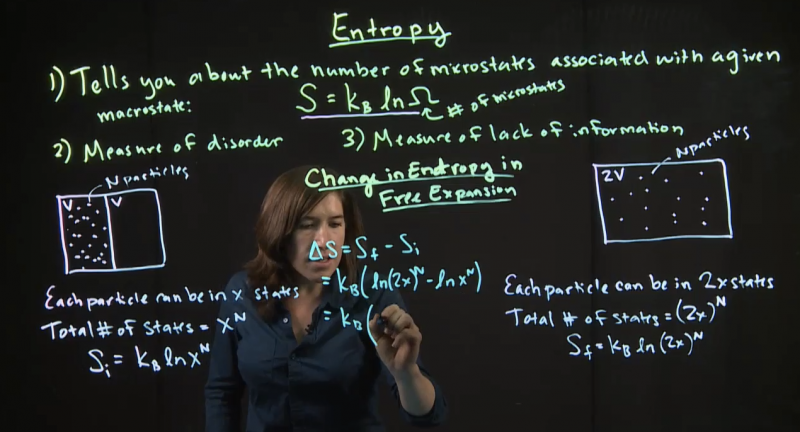 Entropy
1) Tells you about the number of microstates associated with a given
macrostate:
S = k_B ln Ω
# of microstates
2) Measure of disorder
3) Measure of lack of information
N particles
V
V
Change in Entropy in
Free Expansion
N particles
2V
ΔS = S_f - S_i
= k_B ( ln(2x)^N - ln x^N )
= k_B (
Each particle can be in x states
Total # of states = x^N
S_i = k_B ln x^N
Each particle can be in 2x states
Total # of states = (2x)^N
S_f = k_B ln (2x)^N